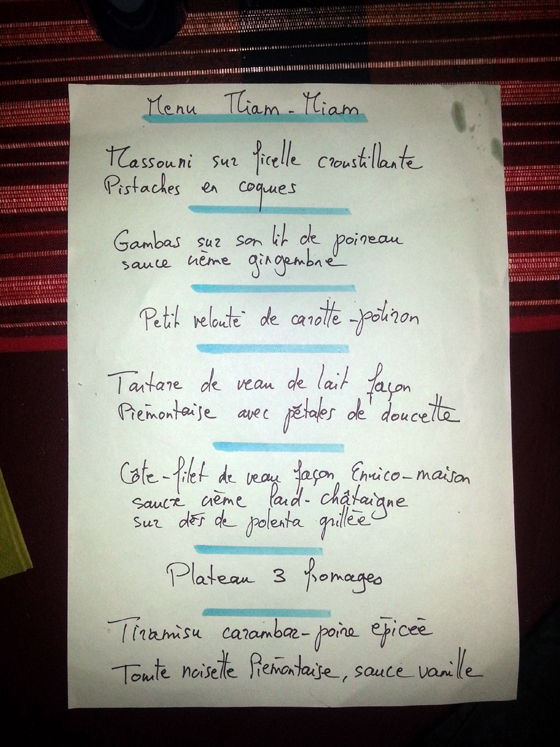 Menu Miam-Miam
Massouni sur ficelle croustillante
Pistaches en coques
Gambas sur son lit de poireau
sauce crème gingembre
Petit velouté de carotte-potiron
Tartare de veau de lait façon
Piémontaise avec pétales de doucette
Côte-filet de veau façon Enrico-maison
sauce crème lard-châtaigne
sur dés de polenta grillée
Plateau 3 fromages
Tiramisu carambar-poire épicée
Tourte noisette Piémontaise, sauce vanille